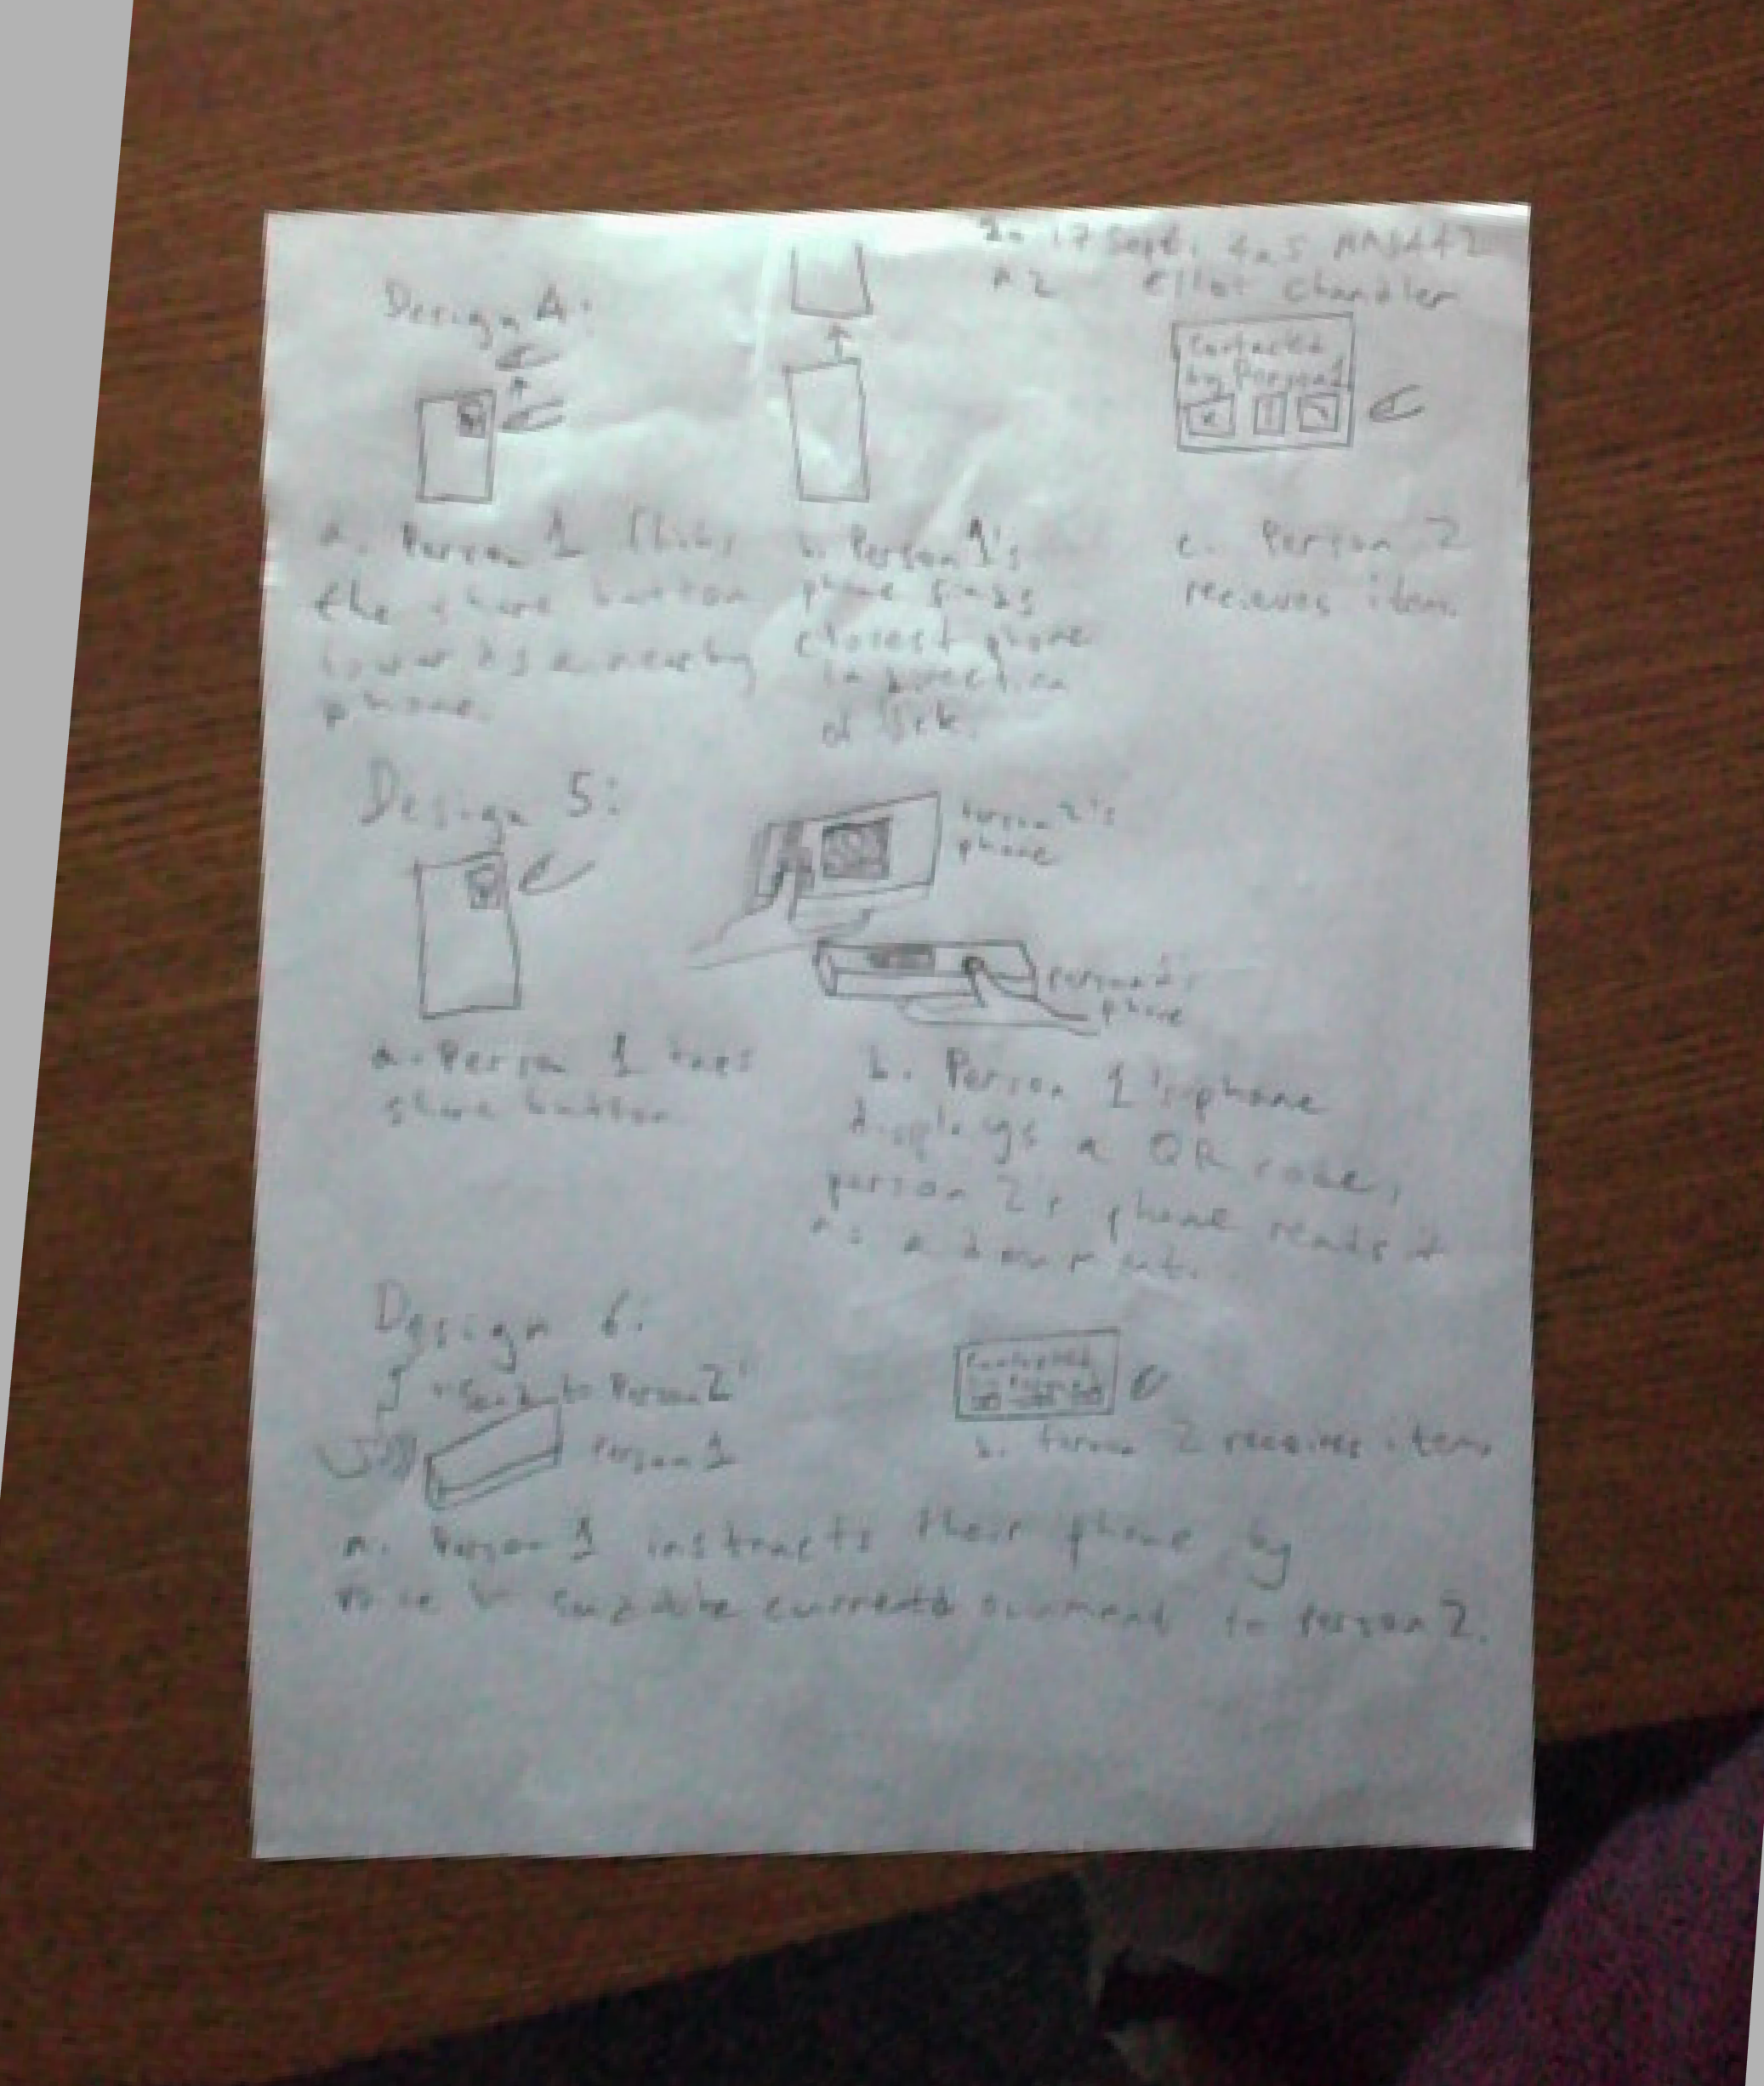 17 Sept.
Elliot Chandler
Design 4:
Contacted
by Person 1
a. Person 1 flicks
the share button
towards a nearby
phone.
b. Person 1's
phone finds
closest phone
in direction
of flick.
c. Person 2
recieves item.
Design 5:
Person 2's
phone
Person 1's
phone
a. Person 1 taps
share button
b. Person 1's phone
displays a QR code,
person 2's phone reads it
as a document.
Design 6:
"Send to Person 2"
Person 1
Contacted
by Person 1
b. Person 2 receives item.
a. Person 1 instructs their phone by
voice to send the current document to Person 2.